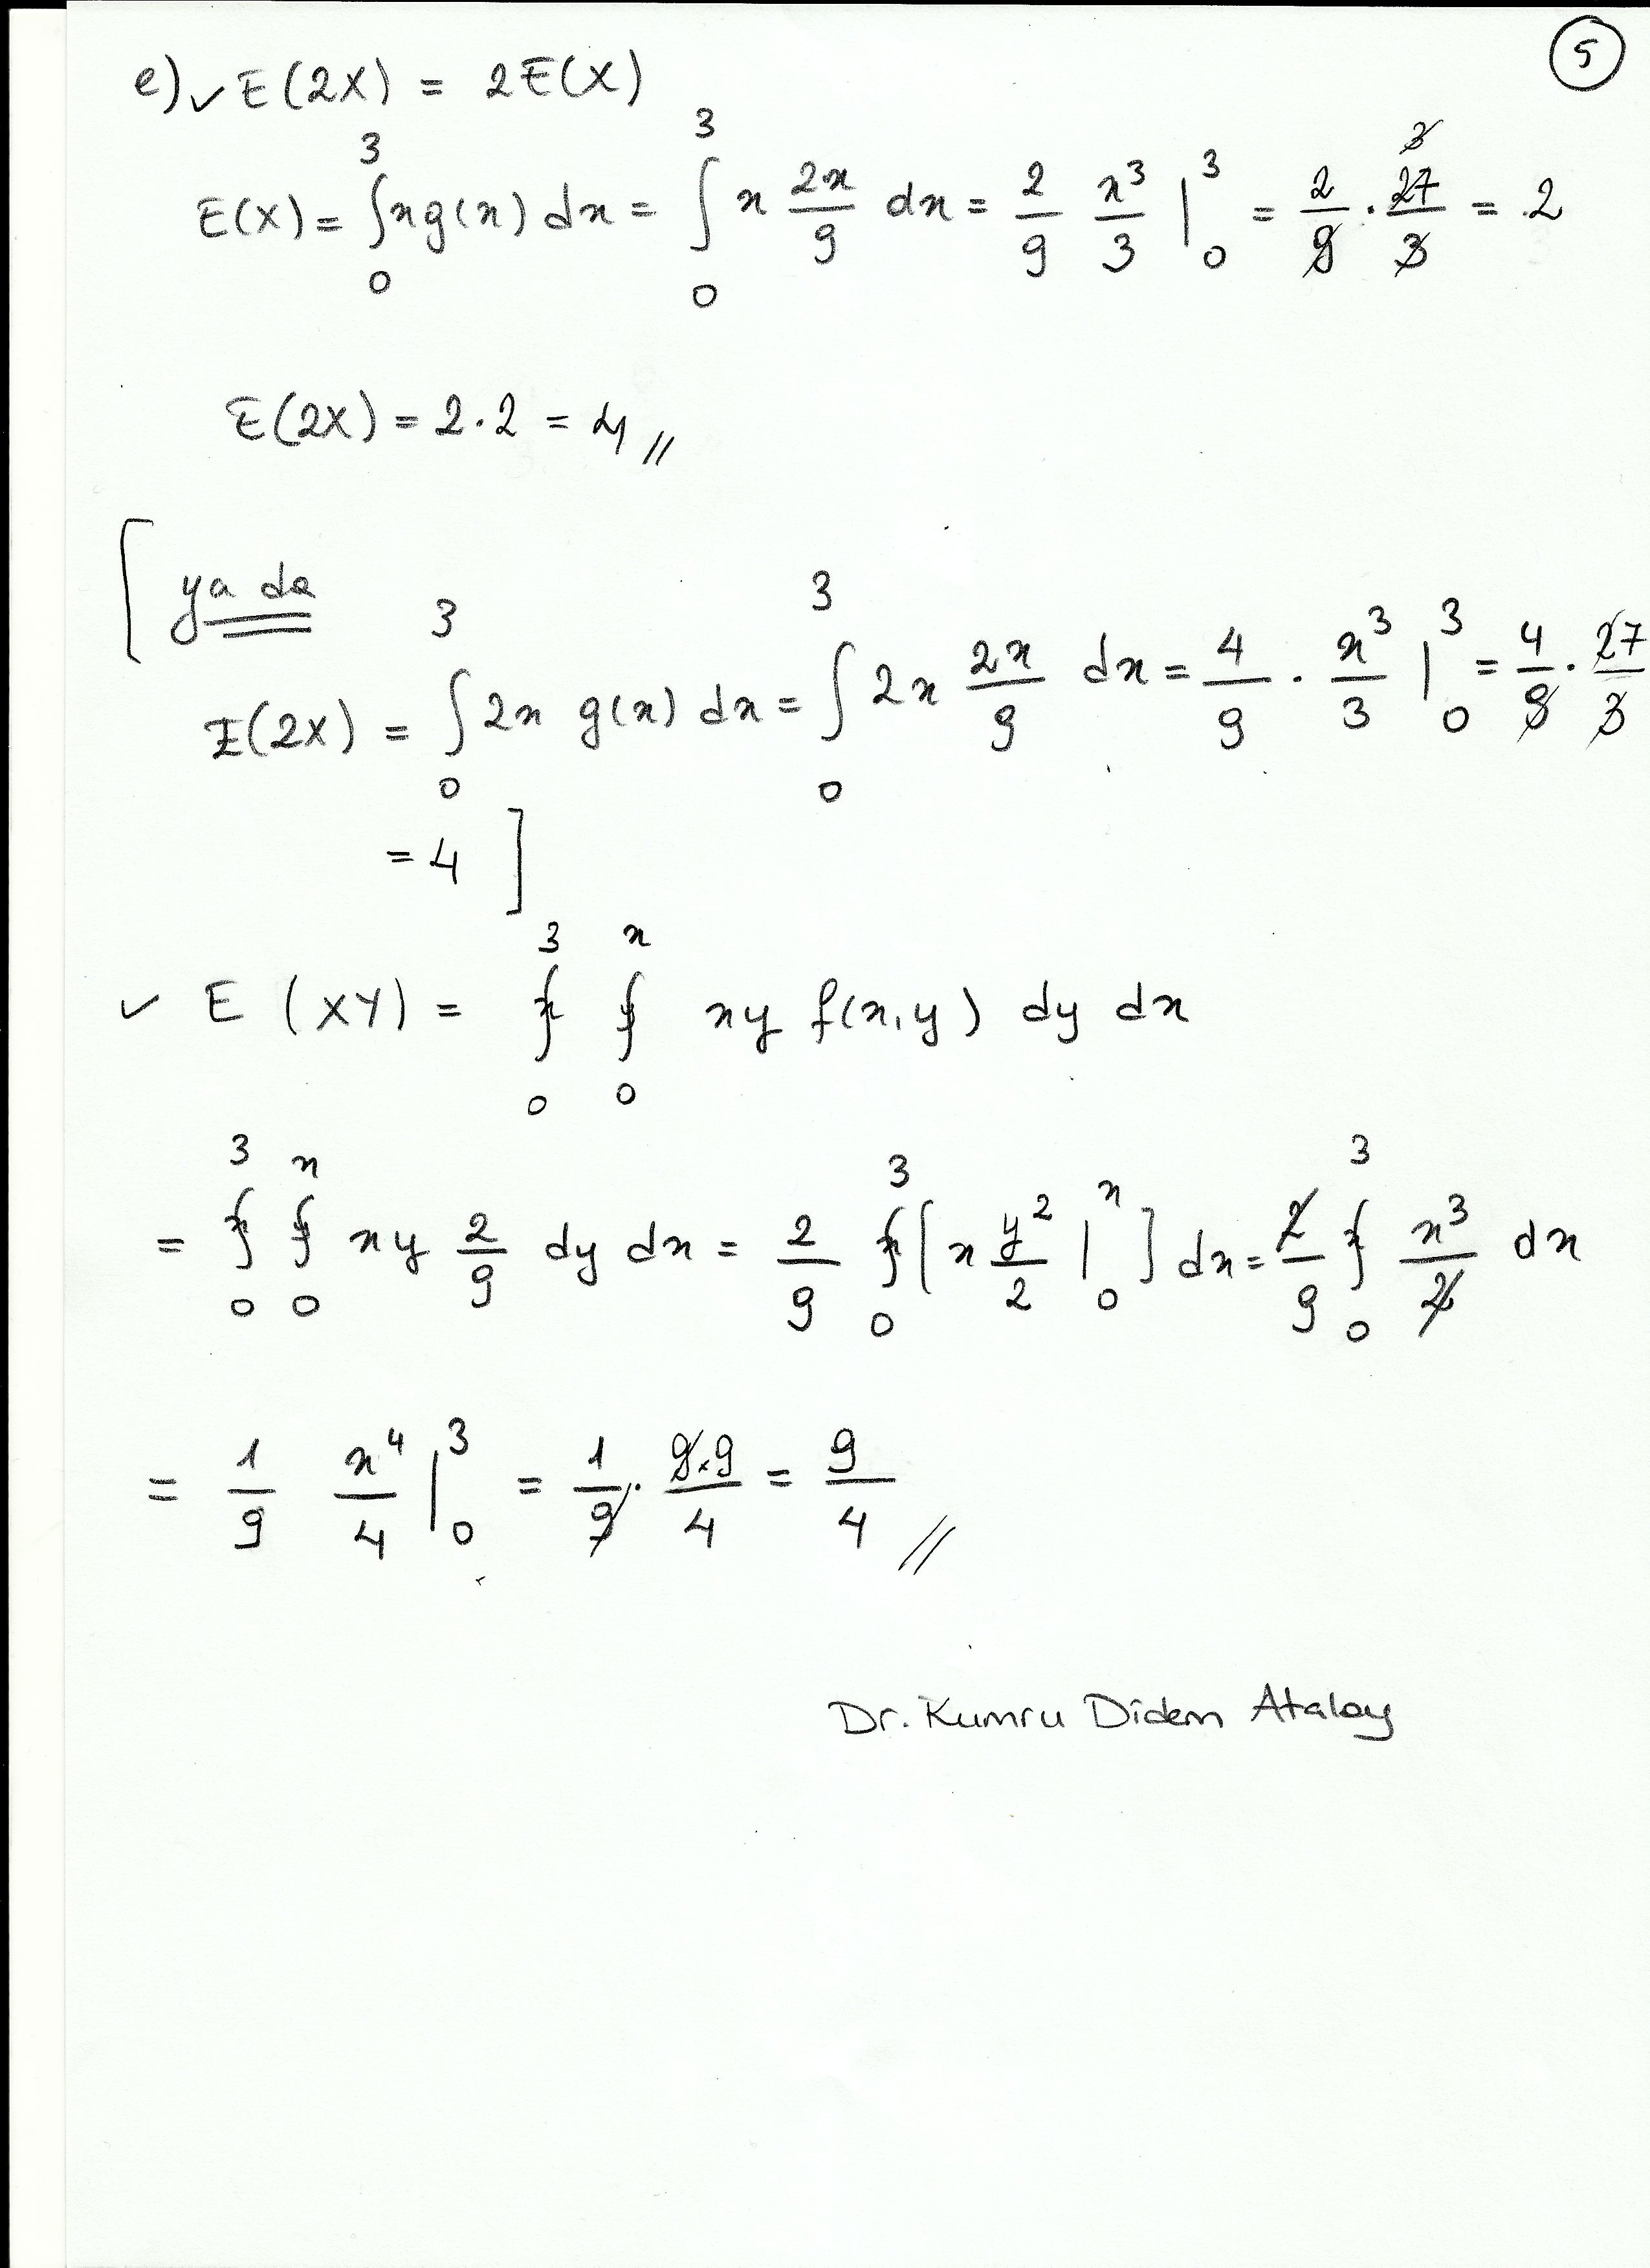 5
e) ✓ E(2X) = 2E(X)
E(X) = ∫₀³ x g(x) dx = ∫₀³ x 2x/9 dx = 2/9 x³/3 |₀³ = 2/9 · 27/3 = 2
E(2X) = 2.2 = 4 //
[ ya da
E(2X) = ∫₀³ 2x g(x) dx = ∫₀³ 2x 2x/9 dx = 4/9 · x³/3 |₀³ = 4/9 · 27/3
= 4 ]
✓ E (XY) = ∫₀³ ∫₀ˣ xy f(x,y) dy dx
= ∫₀³ ∫₀ˣ xy 2/9 dy dx = 2/9 ∫₀³ [x y²/2 |₀ˣ] dx = 2/9 ∫₀³ x³/2 dx
= 1/9 x⁴/4 |₀³ = 1/9 · 9.9/4 = 9/4 //
Dr. Kumru Didem Atalay